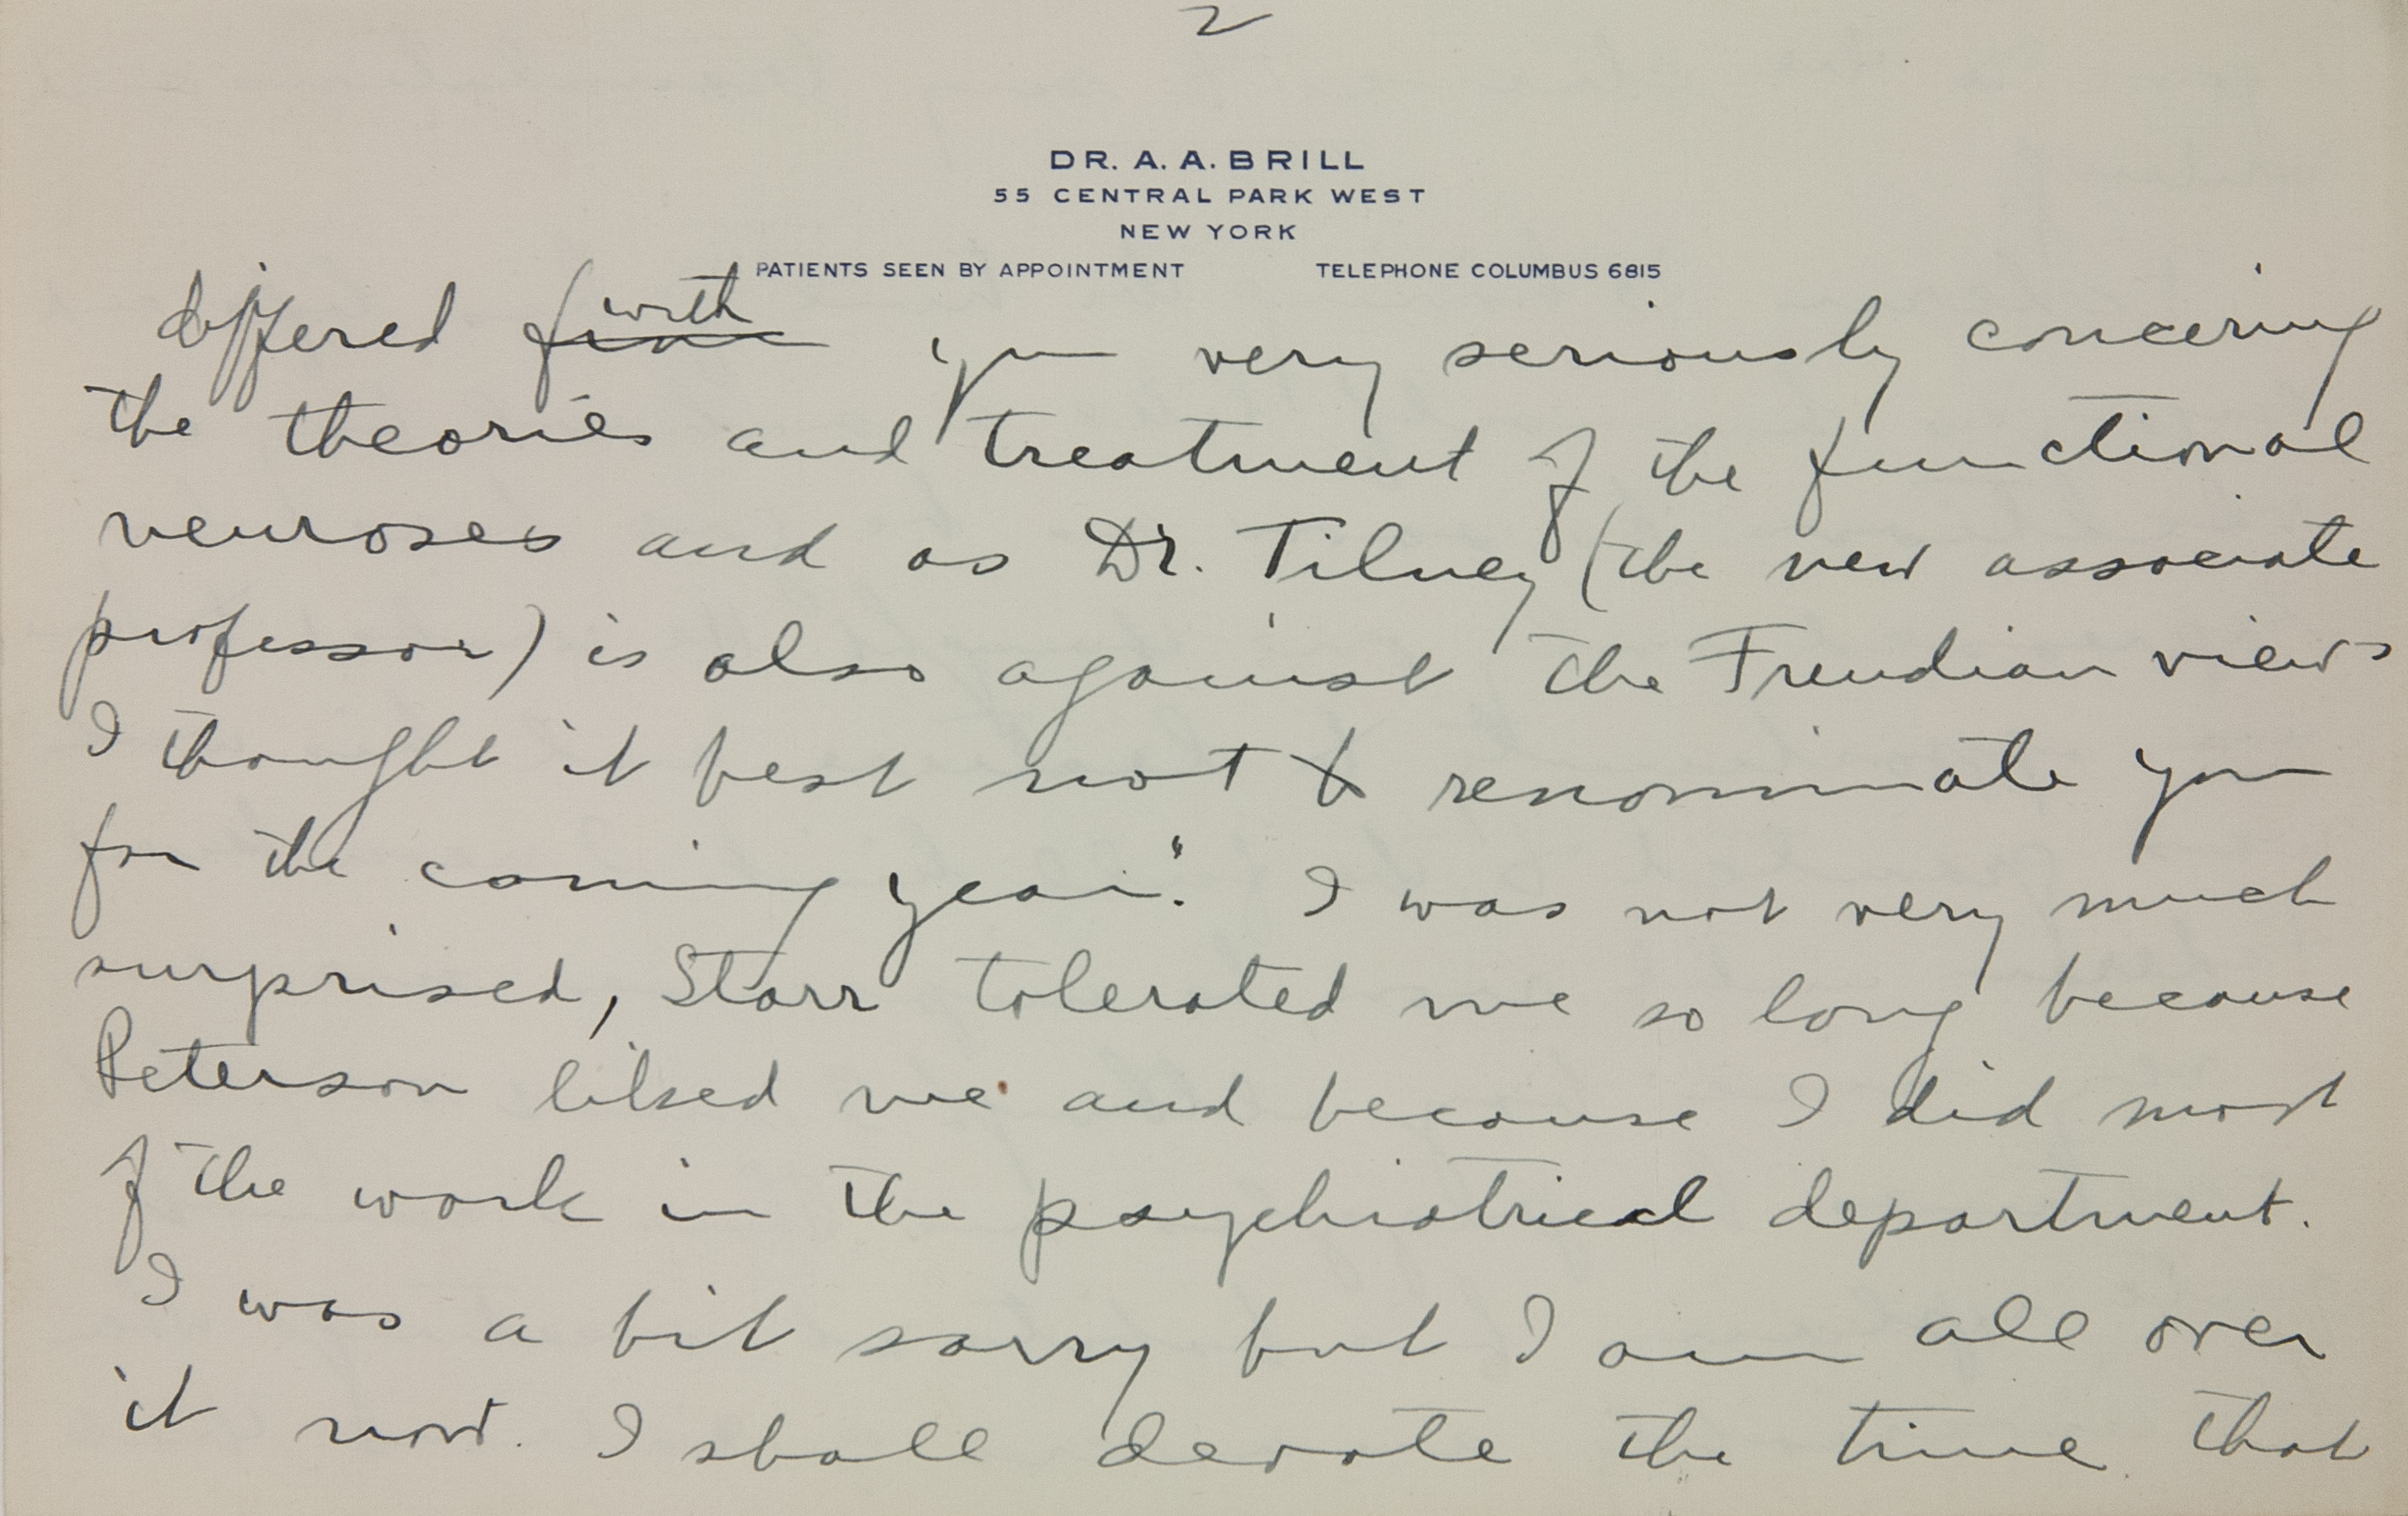 2
DR. A. A. BRILL
55 CENTRAL PARK WEST
NEW YORK
PATIENTS SEEN BY APPOINTMENT TELEPHONE COLUMBUS 6815
differed from with you very seriously concering
the theories and treatment of the functional
neuroses and as Dr. Tilney (the new associate
professor) is also against the Freudian views
I thought it best not to renominate you
for the coming year." I was not very much
surprised, Starr tolerated me so long because
Peterson liked me and because I did most
of the work in the psychiatrical department.
I was a bit sorry but I am all over
it now. I shall devote the time that